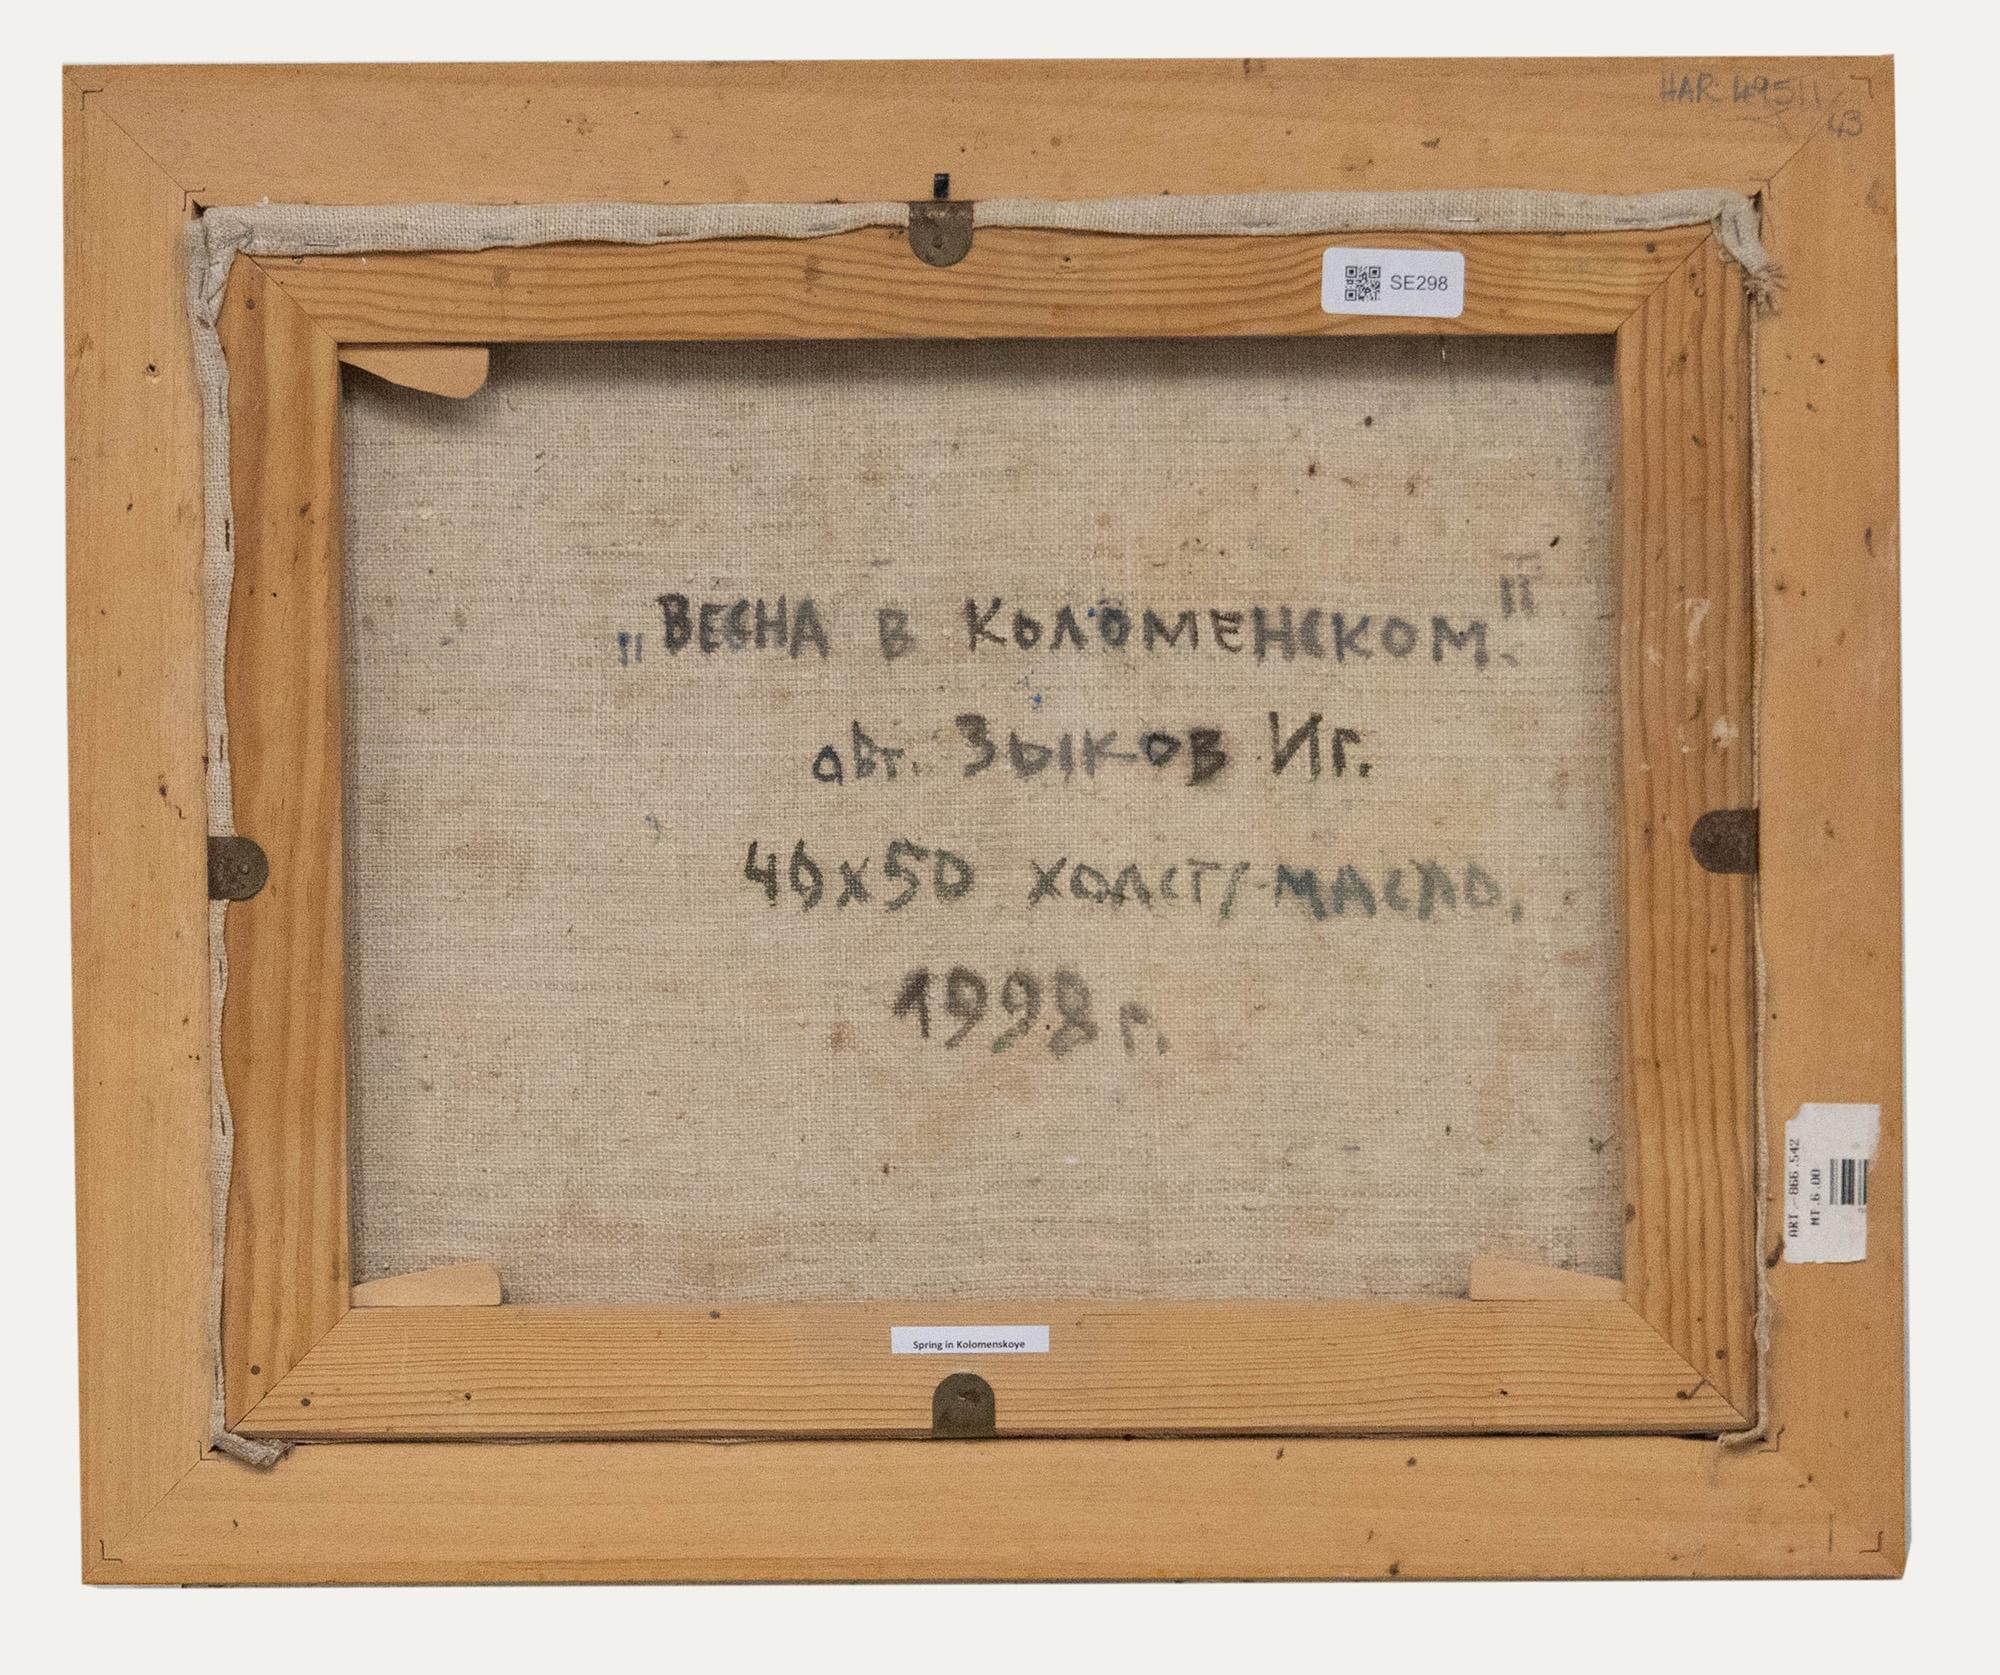 HAR 49511
43
SE298
„ВЕСНА В КОЛОМЕНСКОМ."
авт. ЗЫКОВ Иг.
40х50 холст/масло.
1998 г.
ART.-866.542
MT.6.00
Spring in Kolomenskoye